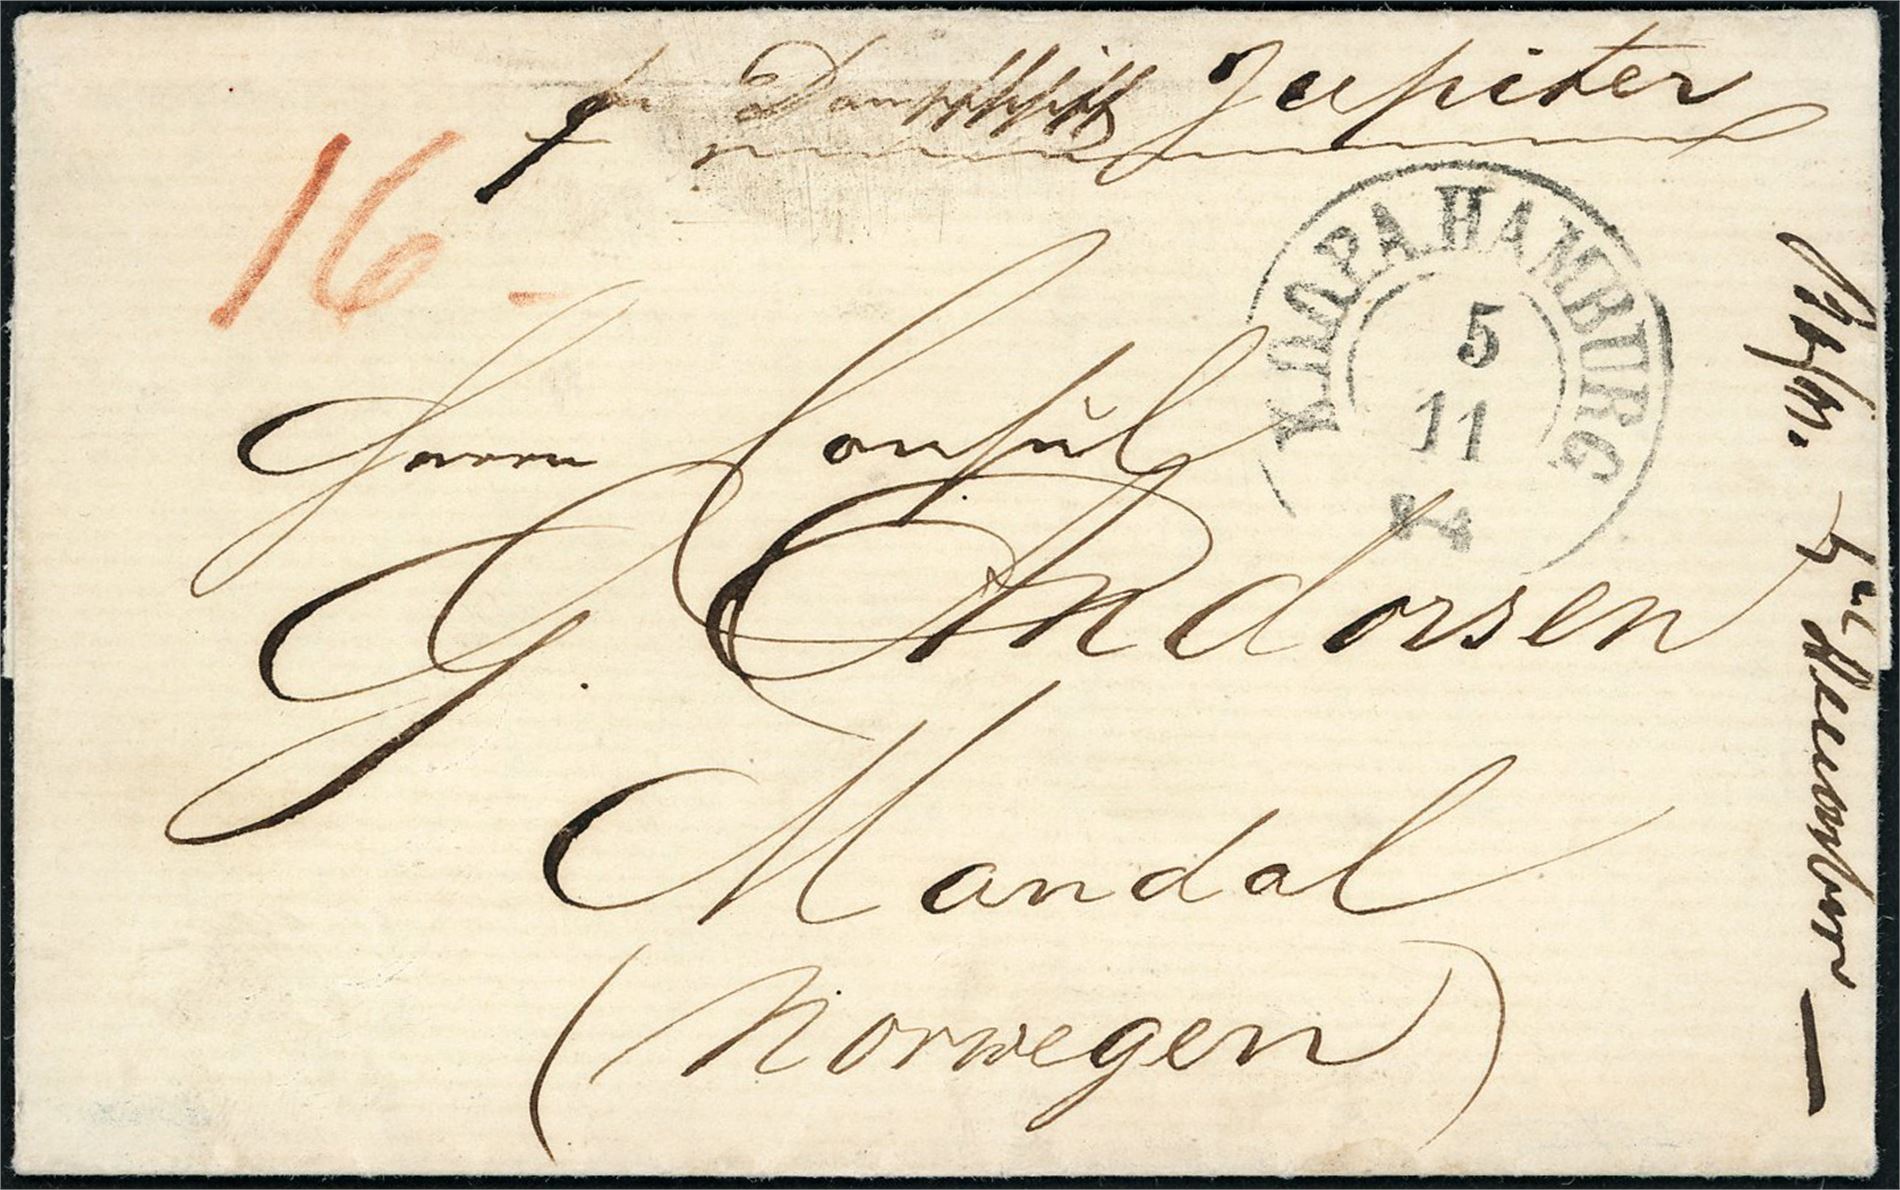 pr Dampfschiff Jupiter
16
K.D.O.P.A. HAMBURG
5
11
Herrn Consul
G. Andorsen
Mandal
(Norwegen)